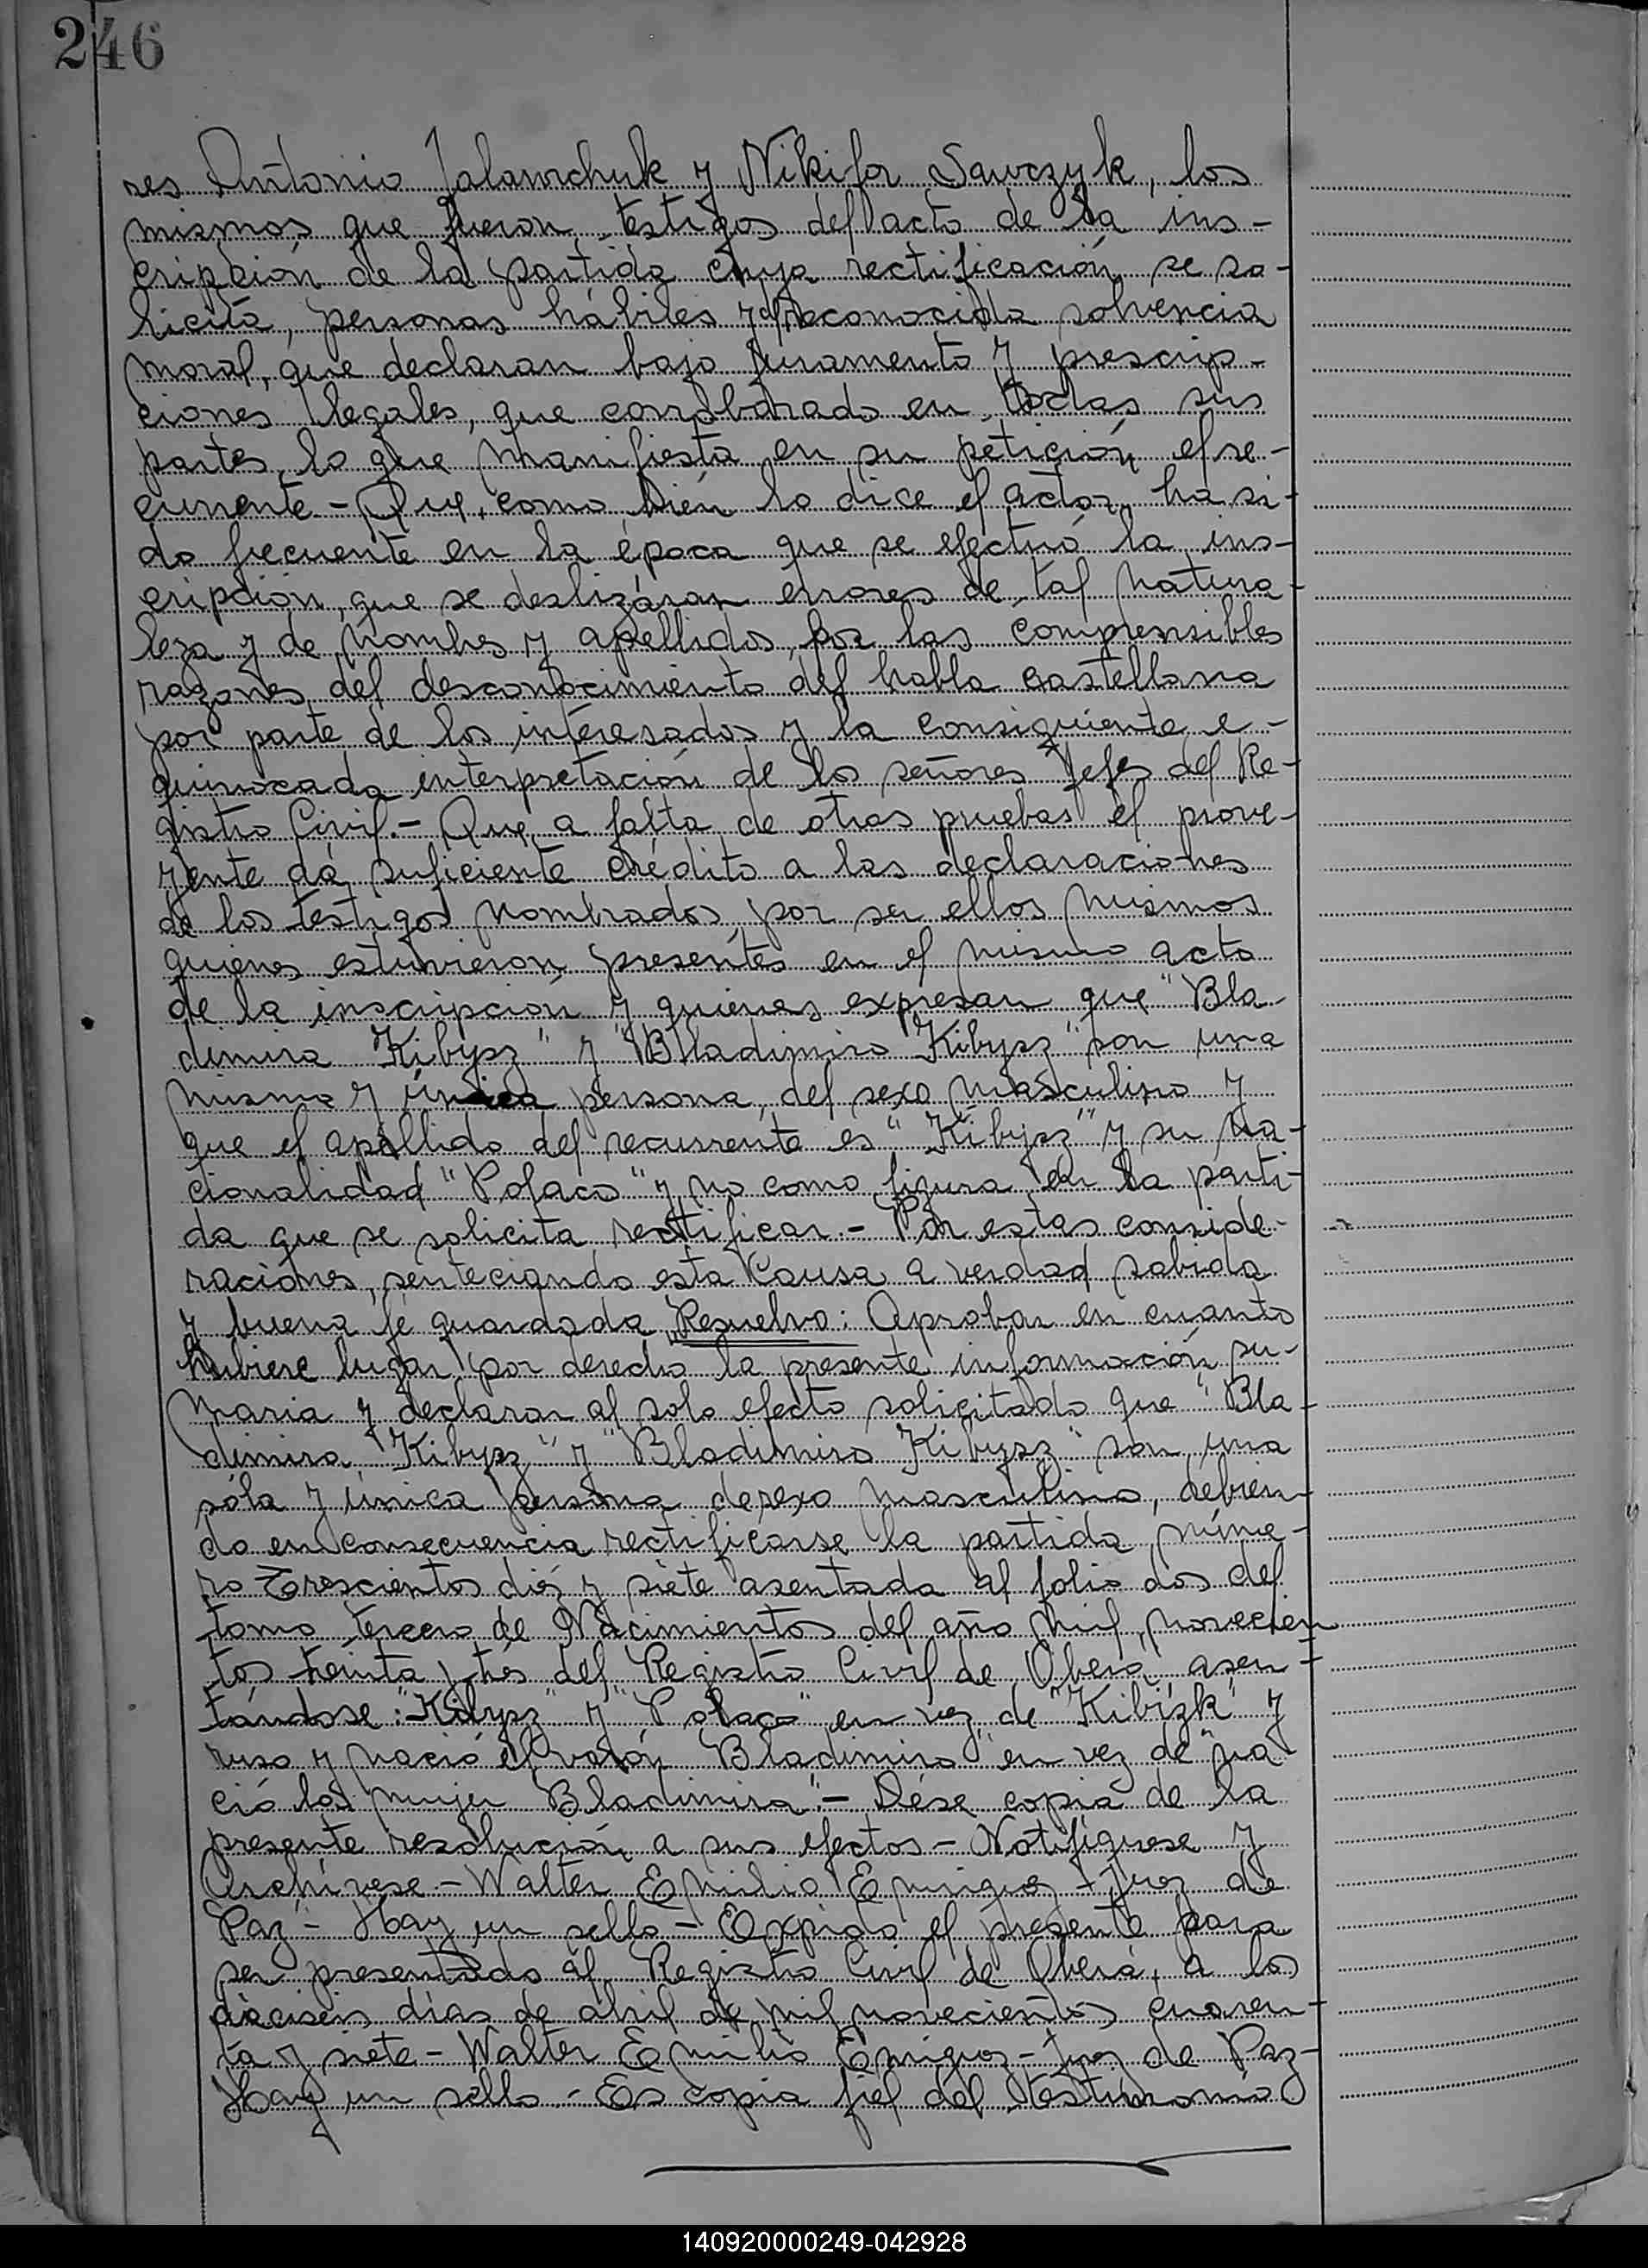 246
res Antonio Jalawchuk y Nikifor Sawczyk, los
mismos que fueron testigos del acto de la ins-
cripción de la partida cuya rectificación se so-
licita, personas hábiles y de reconocida solvencia
moral, que declaran bajo juramento y prescrip-
ciones legales, que corroborado en todas sus
partes, lo que manifiesta en su petición el re-
currente - Que, como bién lo dice el actor, ha si-
do frecuente en la época que se efectuó la ins-
cripción, que se deslizáran errores de tal natura-
leza y de nombres y apellidos, por las comprensibles
razones del desconocimiento del habla castellana
por parte de los interesados y la consiguiente e-
quivocada interpretación de los señores Jefes del Re-
gistro Civil.- Que a falta de otras pruebas el prove-
yente dá suficiente crédito a las declaraciones
de los testigos nombrados, por ser ellos mismos
quienes estuvieron presentes en el mismo acto
de la inscripción y quienes expresan que "Bla-
dimira Kibysz" y "Bladimiro Kibysz" son una
misma y única persona, del sexo masculino y
que el apellido del recurrente es "Kibysz" y su na-
cionalidad "Polaco" y no como figura en la parti-
da que se solicita rectificar.- Por estas conside-
raciones, senteciando esta Causa a verdad sabida
y buena fé guardada, Resuelvo: Aprobar en cuanto
hubiere lugar por derecho la presente información su-
maria y declarar al solo efecto solicitado que "Bla-
dimira Kibysz" y "Bladimiro Kibysz" son una
sóla y única persona de sexo masculino, debien-
do en consecuencia rectificarse la partida núme-
ro Trescientos diéz y siete asentada al folio dos del
tomo tercero de Nacimientos del año mil novecien
tos treinta y tres del Registro Civil de Oberá, asen-
tándose: "Kibysz" y "Polaco" en vez de "Kibizk" y
ruso y nació el varón Bladimiro" en vez de "na
ció la mujer Bladimira".- Dése copia de la
presente resolución a sus efectos - Notifíquese y
Archívese - Walter Emilio Emiguez - Juez de
Paz - Hay un sello - Expido el presente para
ser presentado al Registro Civil de Oberá, a los
dieciseis días de abril de mil novecientos cuaren-
ta y siete - Walter Emilio Emiguez - Juez de Paz -
Hay un sello - Es copia fiel del testimonio
140920000249-042928